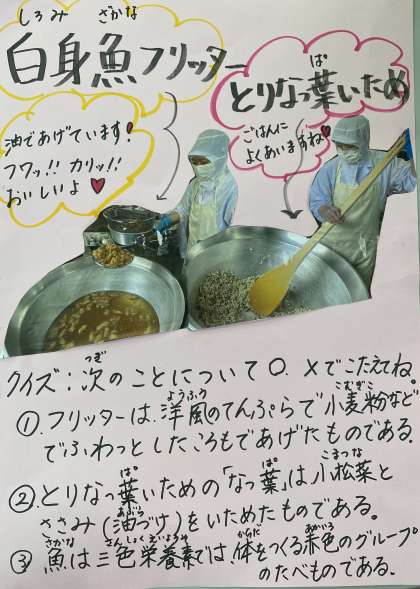 しろみ ざかな
白身魚フリッター
ぱ
とりなっ葉いため
油であげています!
フワッ!! カリッ!!
おいしいよ♥
ごはんに
よくあいますね♥
つぎ
クイズ:次のことについて○.×でこたえてね
ようふう こむぎこ
①.フリッターは.洋風のてんぷらで小麦粉など
でふわっとしたころもであげたものである.
ぱ ぱ こまつな
②.とりなっ葉いための「なっ葉」は小松菜と
あぶら
ささみ(油づけ)をいためたものである。
さかな さんしょくえいようそ からだ あかいろ
③魚は三色栄養素では、体をつくる赤色のグループ
のたべものである.